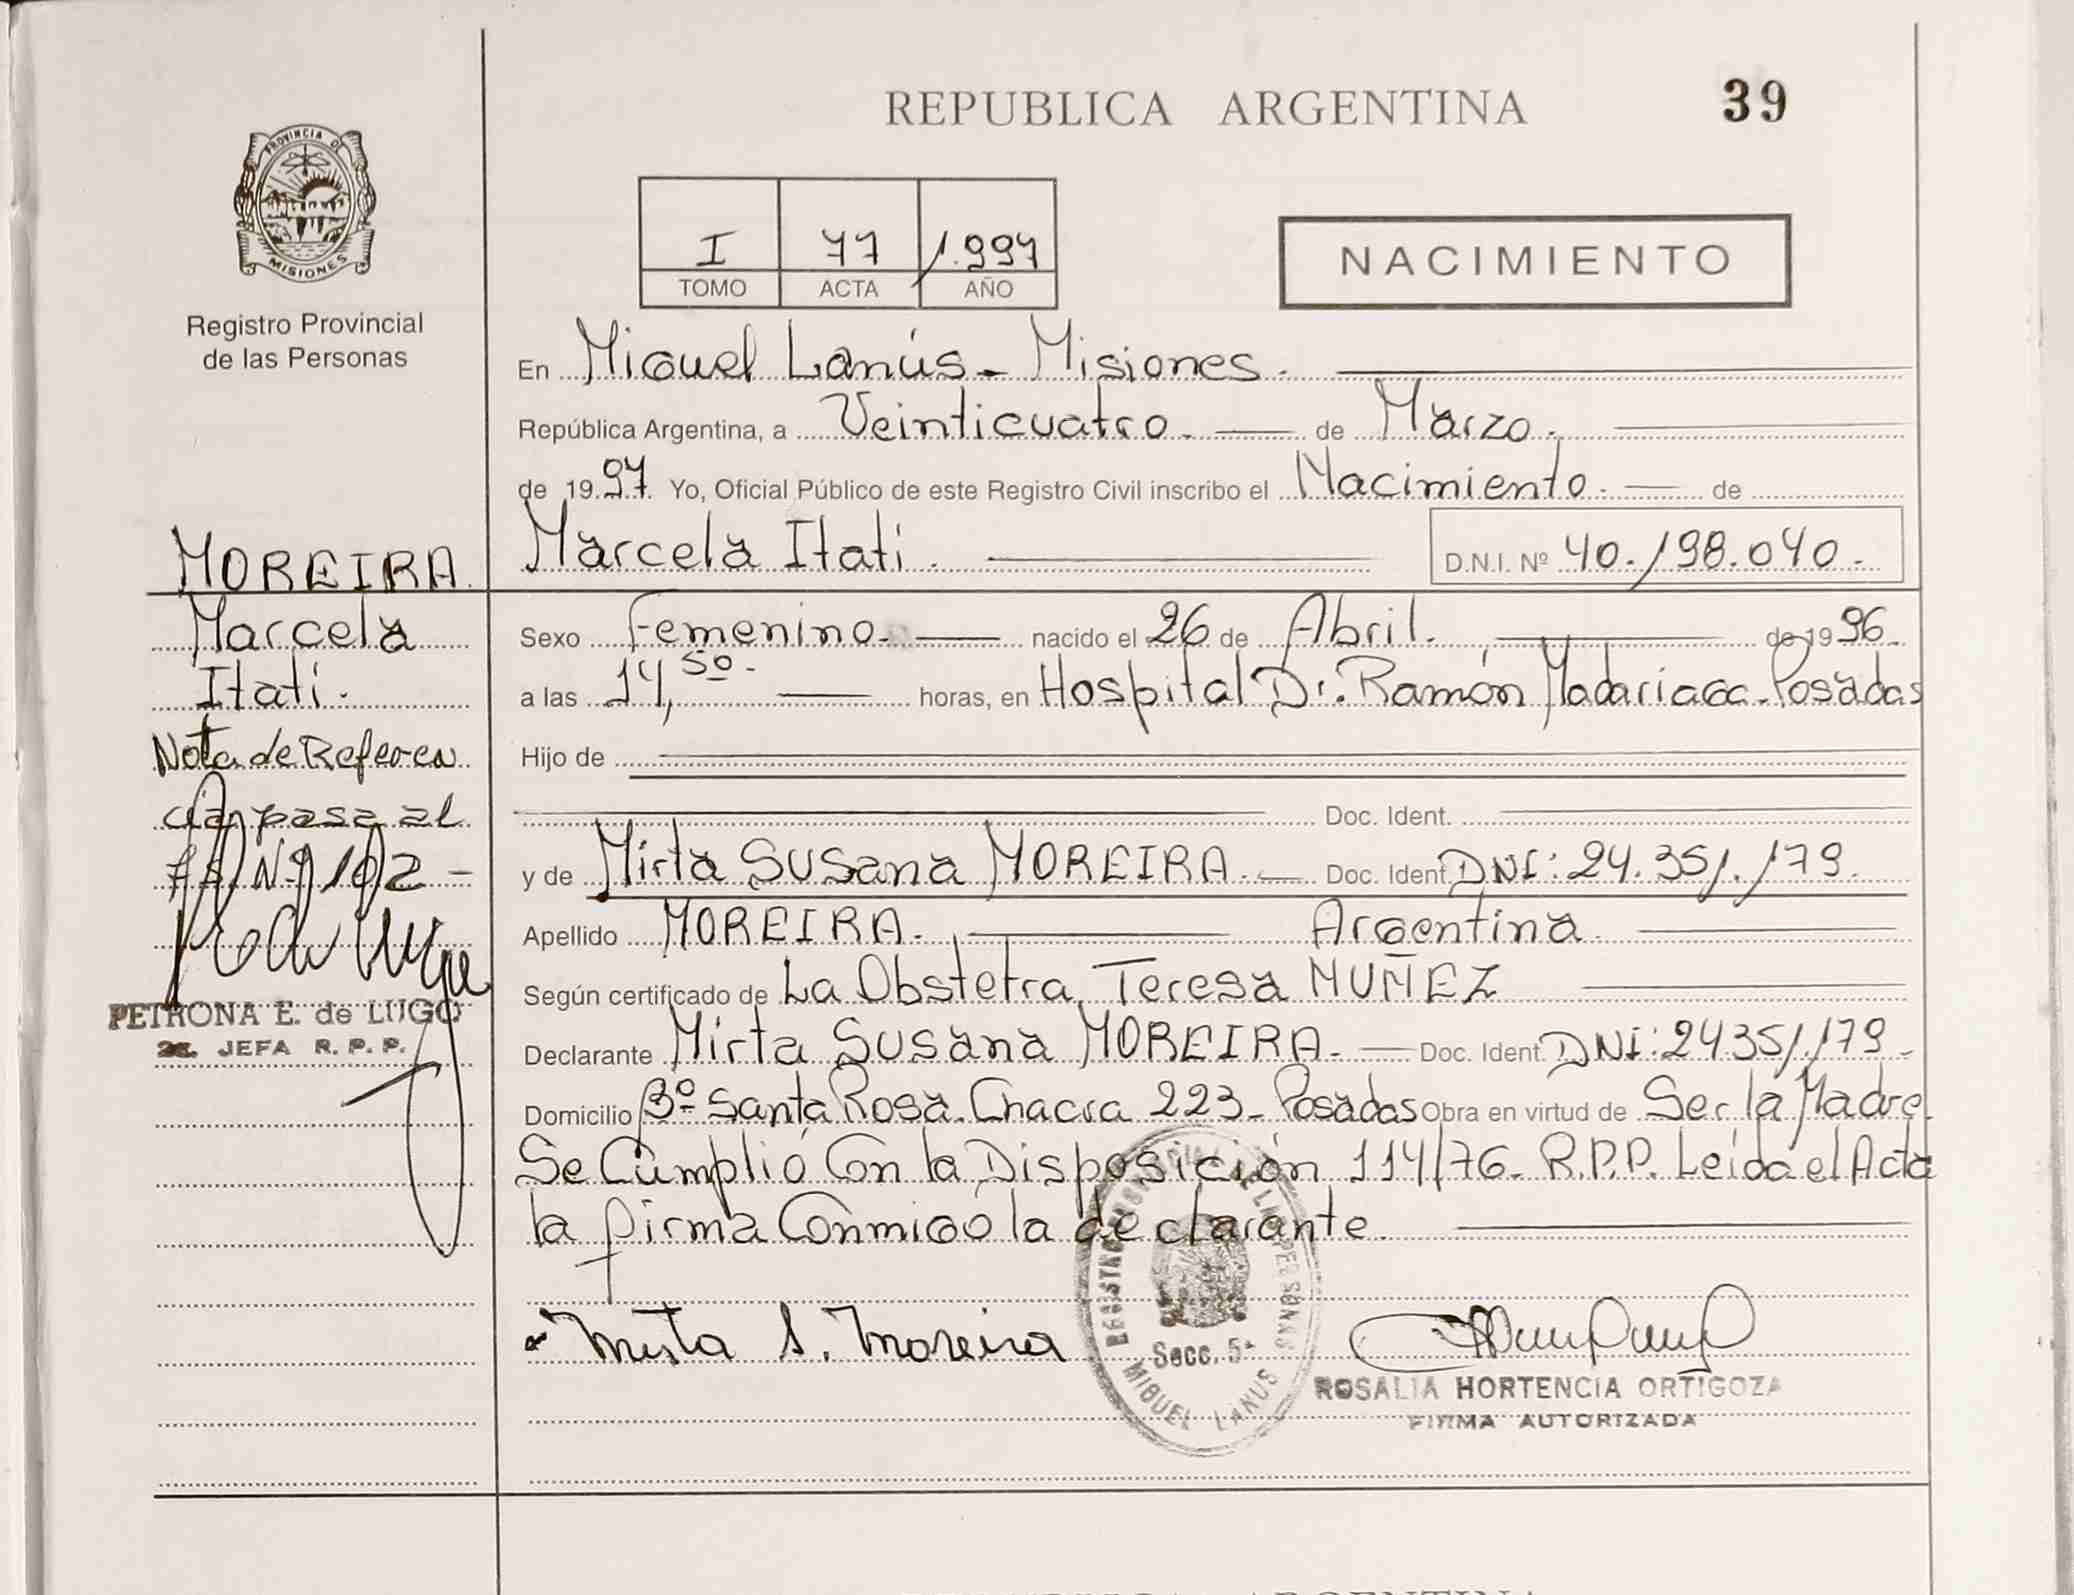 REPUBLICA ARGENTINA
39
PROVINCIA DE
MISIONES
Registro Provincial
de las Personas
I 77 1.997
TOMO ACTA AÑO
NACIMIENTO
En Miguel Lanús - Misiones.
República Argentina, a Veinticuatro. de Marzo.
de 1997. Yo, Oficial Público de este Registro Civil inscribo el Nacimiento. de
Marcela Itati. D.N.I. Nº 40.198.040.-
MOREIRA.
Marcela
Itati.
Nota de Referen
cia pasa al
Nº 102-
PETRONA E. de LUGO
JEFA R. P. P.
Sexo Femenino. nacido el 26 de Abril. de 1996.
a las 14,50.- horas, en Hospital Dr. Ramón Madariaga. Posadas
Hijo de
Doc. Ident.
y de Mirta Susana MOREIRA. Doc. Ident. DNI: 24.351.179.
Apellido MOREIRA. Argentina.
Según certificado de La Obstetra, Teresa MUÑEZ
Declarante Mirta Susana MOREIRA. Doc. Ident. DNI: 24351.179.
Domicilio Bº Santa Rosa. Chacra 223- Posadas Obra en virtud de Ser la Madre
Se Cumplió Con la Disposición 114/76- R.P.P. Leída el Acta
la firma Conmigo la declarante.
Mirta S. Moreira
Secc. 5ª
MIGUEL LANUS
ROSALIA HORTENCIA ORTIGOZA
FIRMA AUTORIZADA